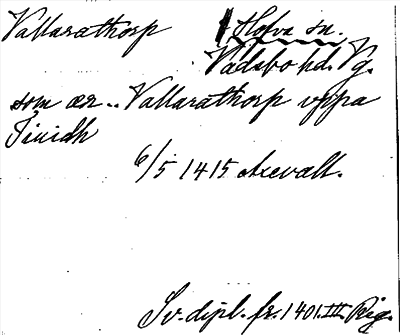 Vallarathorp Hofva sn.
Vadsbo hd. Vg.
som ær .. Vallarathorp uppa
Tiuidh
6/5 1415 Axevall.
Sv. dipl. fr. 1401. III Reg.